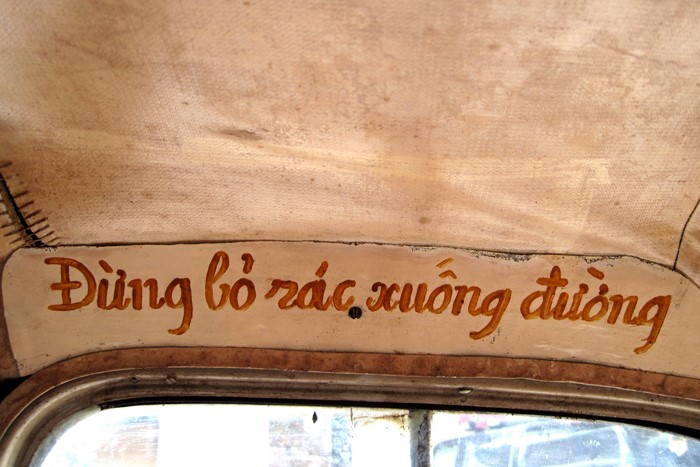 Đừng bỏ rác xuống đường